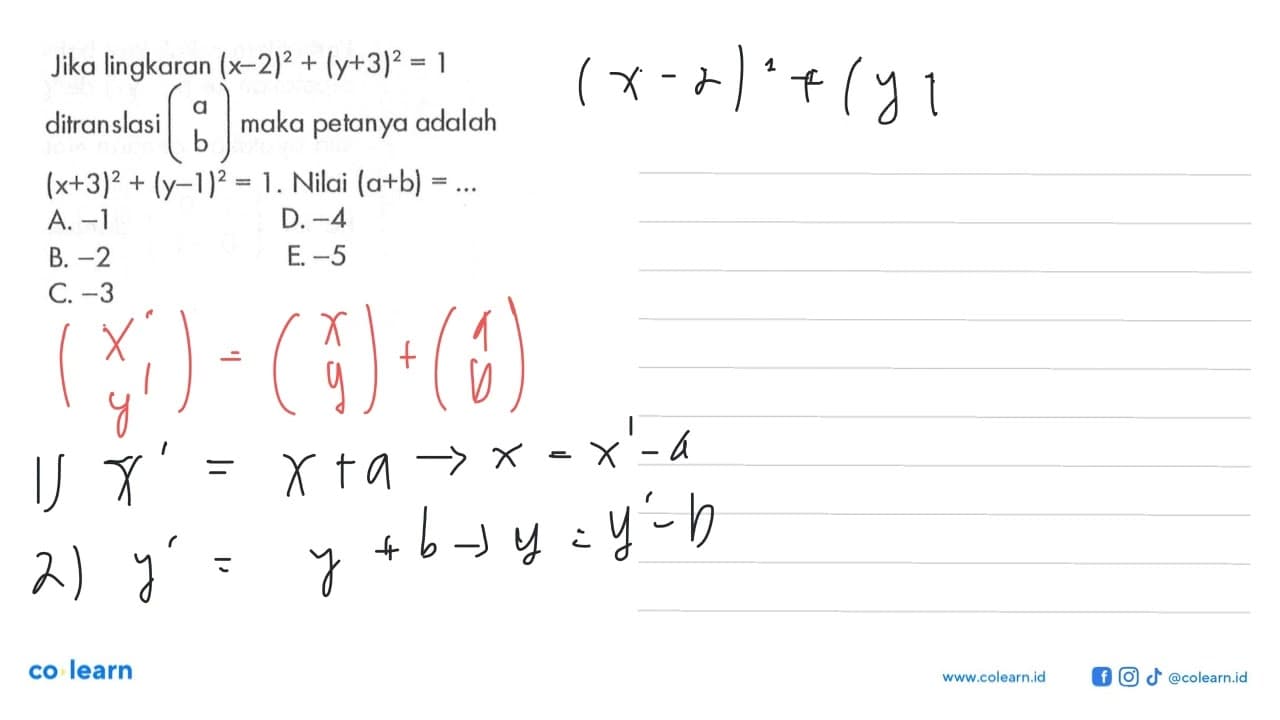 Jika lingkaran (x–2)² + (y+3)² = 1
ditranslasi (a b) maka petanya adalah
(x+3)² + (y–1)² = 1. Nilai (a+b) = ...
A. –1 D. –4
B. –2 E. –5
C. –3
(x' y') = (x y) + (a b)
1) x' = x + a → x = x' - a
2) y' = y + b → y = y' - b
(x - 2)² + (y
co learn
www.colearn.id @colearn.id